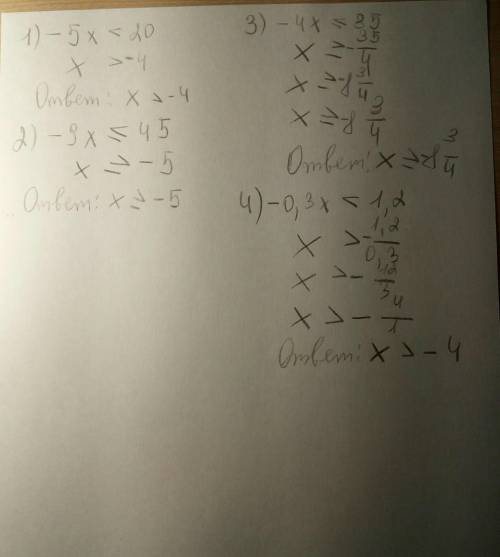 1) -5x < 20
x > -4
Ответ: x > -4
2) -9x ≤ 45
x ≥ -5
Ответ: x ≥ -5
3) -4x ≤ 35
x ≥ -35/4
x ≥ -8 3/4
x ≥ -8 3/4
Ответ: x ≥ -8 3/4
4) -0,3x < 1,2
x > -1,2/0,3
x > -12/3
x > -4/1
Ответ: x > -4